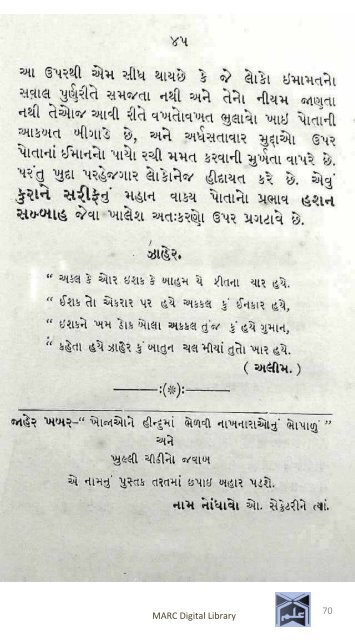 ૪૫
આ ઉપરથી એમ સીધ થાયછે કે જે લોકો ઇમામતનો
સવાલ પુર્ણરીતે સમજતા નથી અને તેનો નીયમ જાણતા
નથી તેઓજ આવી રીતે વખતોવખત ભુલાવો ખાઈ પોતાની
આકબત બીગાડે છે, અને અર્ધસતાવાર મુદ્દાઓ ઉપર
પોતાનાં ઇમાનનો પાયો રચી મમત કરવાની મુર્ખતા વાપરે છે.
પરંતુ ખુદા પરહેજગાર લોકોનેજ હીદાયત કરે છે. એવું
કુરાને સરીફનું મહાન વાક્ય પોતાનો પ્રભાવ હશન
સબ્બાહ જેવા ખાલેશ અતઃકરણો ઉપર પ્રગટાવે છે.
ઝાહેર.
“ અકલ કે ઓર ઇશક કે બાહમ યે રીતના ચાર હયે.
“ ઇશક તો એકરાર પર હયે અકકલ કું ઇનકાર હયે,
“ ઇશકને ખમ ઠોક બોલા અકકલ તુંજ કું હયે ગુમાન,
“ કહેતા હયે ઝાહેર કું બાતુન ચલ મીયાં તુતો ખાર હયે.
( અલીમ. )
—:(※):—
જાહેર ખબર–“ ખોજાઓને હીન્દુમાં ભેળવી નાખનારાઓનું ભોપાળું ”
અને
ખુલ્લી ચીઠીનો જવાબ
એ નામનું પુસ્તક તરતમાં છપાઇ બહાર પડશે.
નામ નોંધાવો ઓ. સેક્રેટરીને ત્યાં.
MARC Digital Library
علم
70